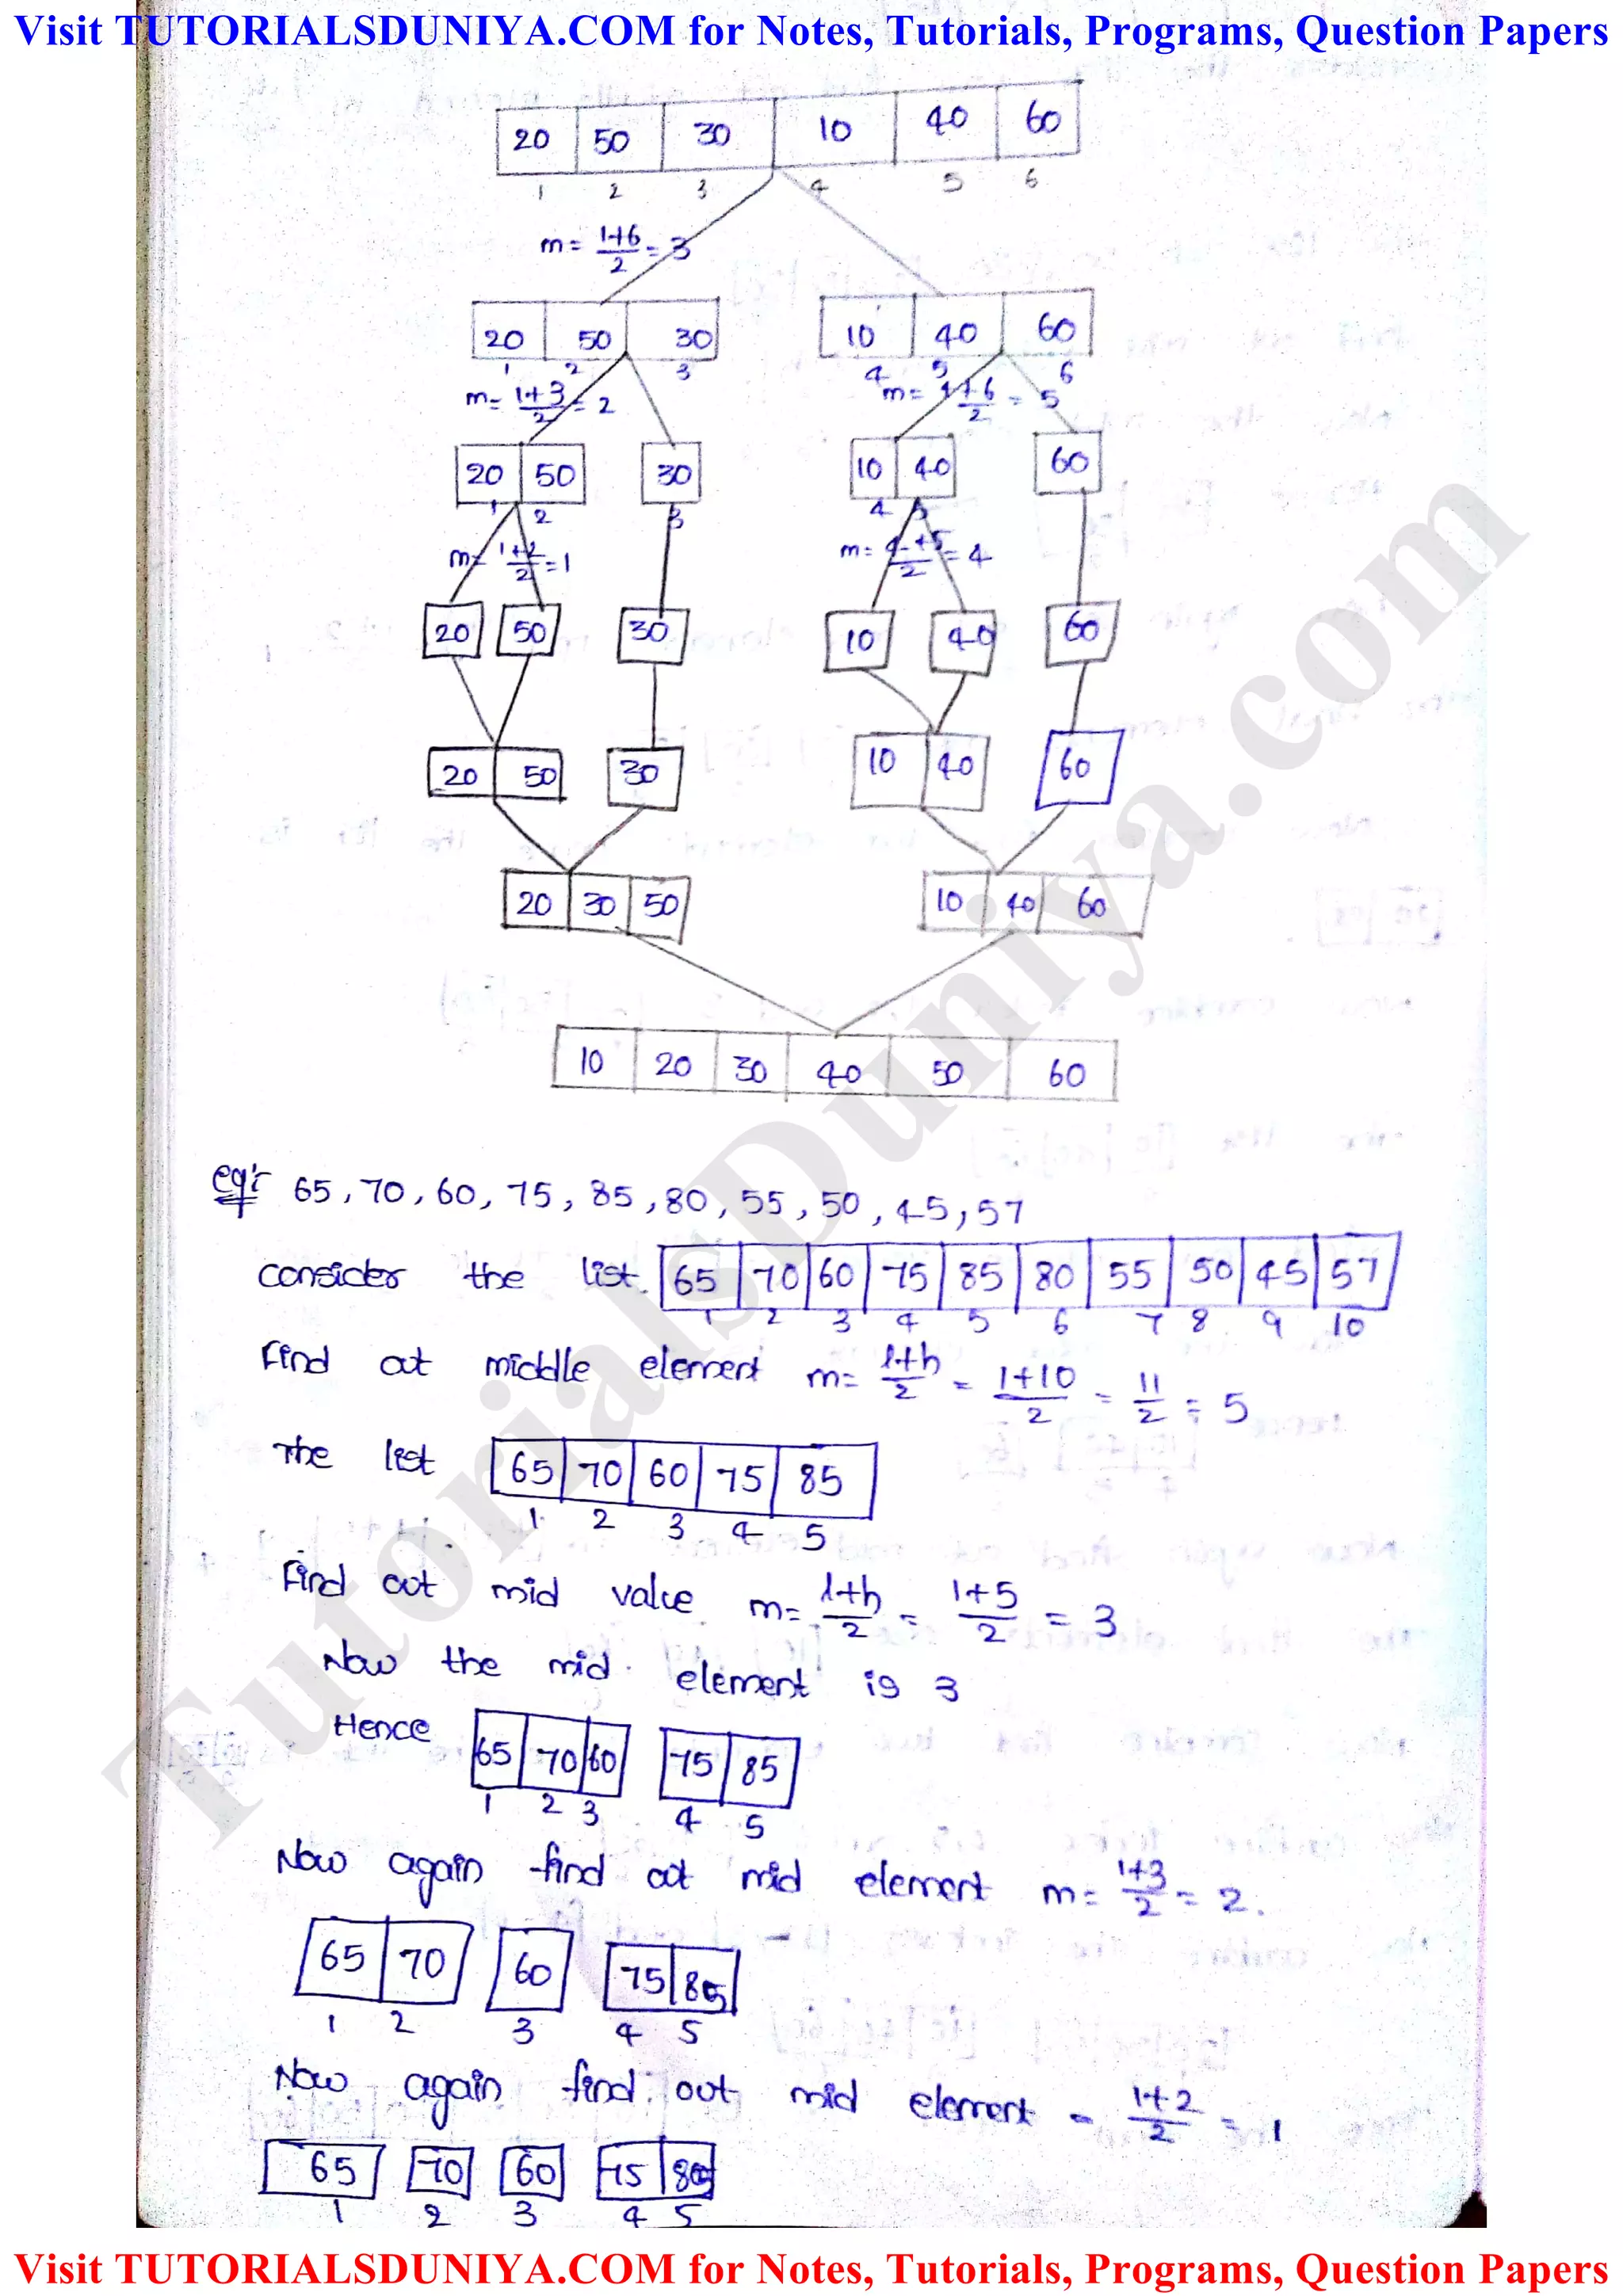 Visit TUTORIALSDUNIYA.COM for Notes, Tutorials, Programs, Question Papers
20 50 30 10 40 60
1 2 3 4 5 6
m = 1+6/2 = 3
20 50 30 10 40 60
1 2 3 4 5 6
m = 1+3/2 = 2 m = 4+6/2 = 5
20 50 30 10 40 60
1 2 3 4 5
m = 1+2/2 = 1 m = 4+5/2 = 4
20 50 30 10 40 60
20 50 30 10 40 60
20 30 50 10 40 60
10 20 30 40 50 60
eg:- 65, 70, 60, 75, 85, 80, 55, 50, 45, 57
consider the list. 65 70 60 75 85 80 55 50 45 57
1 2 3 4 5 6 7 8 9 10
Find out middle element m = l+h/2 = 1+10/2 = 11/2 = 5
The list 65 70 60 75 85
1 2 3 4 5
Find out mid value m = l+h/2 = 1+5/2 = 3
Now the mid element is 3
Hence 65 70 60 75 85
1 2 3 4 5
Now again find out mid element m = 1+3/2 = 2.
65 70 60 75 85
1 2 3 4 5
Now again find out mid element = 1+2/2 = 1
65 70 60 75 85
1 2 3 4 5
TutorialsDuniya.com
Visit TUTORIALSDUNIYA.COM for Notes, Tutorials, Programs, Question Papers